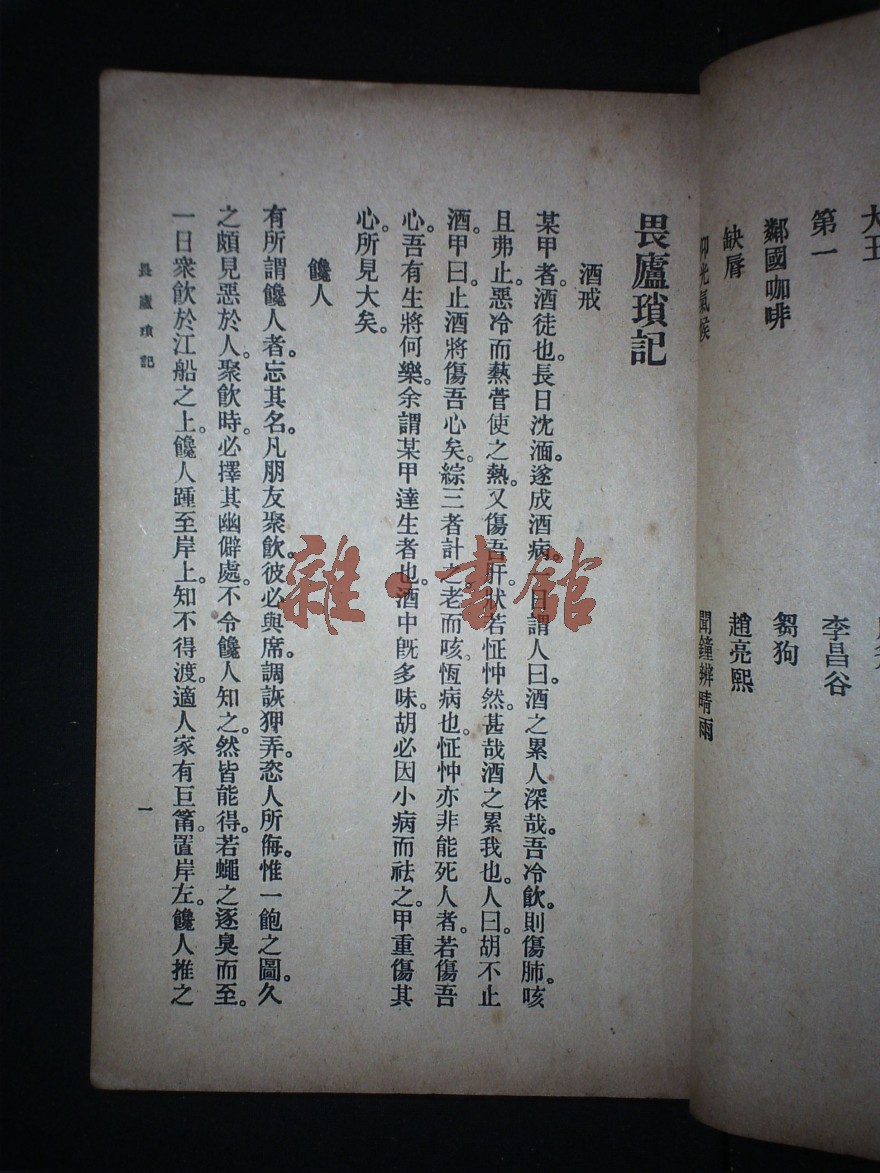 大王
第一
鄰國咖啡
缺脣
卬光氣候
李昌谷
芻狗
趙亮熙
聞鐘辨晴雨
畏廬瑣記
酒戒
某甲者。酒徒也。長日沈湎。遂成酒病。一日謂人曰。酒之累人深哉。吾冷飲。則傷肺。咳
且弗止。惡冷而熱。菅使之熱。又傷吾肝。狀若怔忡然。甚哉酒之累我也。人曰。胡不止
酒。甲曰。止酒將傷吾心矣。綜三者計之。老而咳。恆病也。怔忡亦非能死人者。若傷吾
心。吾有生將何樂。余謂某甲達生者也。酒中旣多味。胡必因小病而祛之。甲重傷其
心。所見大矣。
饞人
有所謂饞人者。忘其名。凡朋友聚飲。彼必與席。調詼狎弄。恣人所侮。惟一飽之圖。久
之頗見惡於人。聚飲時。必擇其幽僻處。不令饞人知之。然皆能得。若蠅之逐臭而至。
一日衆飲於江船之上。饞人踵至岸上。知不得渡。適人家有巨筩。置岸左。饞人推之
畏廬瑣記
一
雜·書館